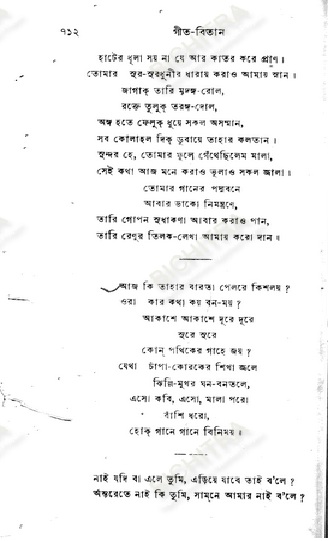 ৭১২ গীত-বিতান
হাটের ধূলা সয় না যে আর কাতর করে প্রাণ।
তোমার সুর-সুরধুনীর ধারায় করাও আমায় স্নান।
জাগাক্ তারি মৃদঙ্গ-রোল,
রক্তে তুলুক্ তরঙ্গ-দোল,
অঙ্গ হতে ফেলুক্ ধুয়ে সকল অসম্মান,
সব কোলাহল দিক্ ডুবায়ে তাহার কলতান।
সুন্দর হে, তোমার ফুলে গেঁথেছিলেম মালা,
সেই কথা আজ মনে করাও ভুলাও সকল জ্বালা।
তোমার গানের পদ্মবনে
আবার ডাকো নিমন্ত্রণে,
তারি গোপন সুধাকণা আবার করাও পান,
তারি রেণুর তিলক-লেখা আমায় করো দান।
আজ কি তাহার বারতা পেলরে কিশলয়?
ওরা কার কথা কয় বন-ময়?
আকাশে আকাশে দূরে দূরে
সুরে সুরে
কোন্ পথিকের গাহে জয়?
যেথা চাঁপা-কোরকের শিখা জ্বলে
ঝিল্লি-মুখর ঘন-বনতলে,
এসো কবি, এসো, মালা পরো
বাঁশি ধরো,
হোক্ গানে গানে বিনিময়।
নাই যদি বা এলে তুমি, এড়িয়ে যাবে তাই ব'লে?
অন্তরেতে নাই কি তুমি, সাম্‌নে আমার নাই ব'লে?